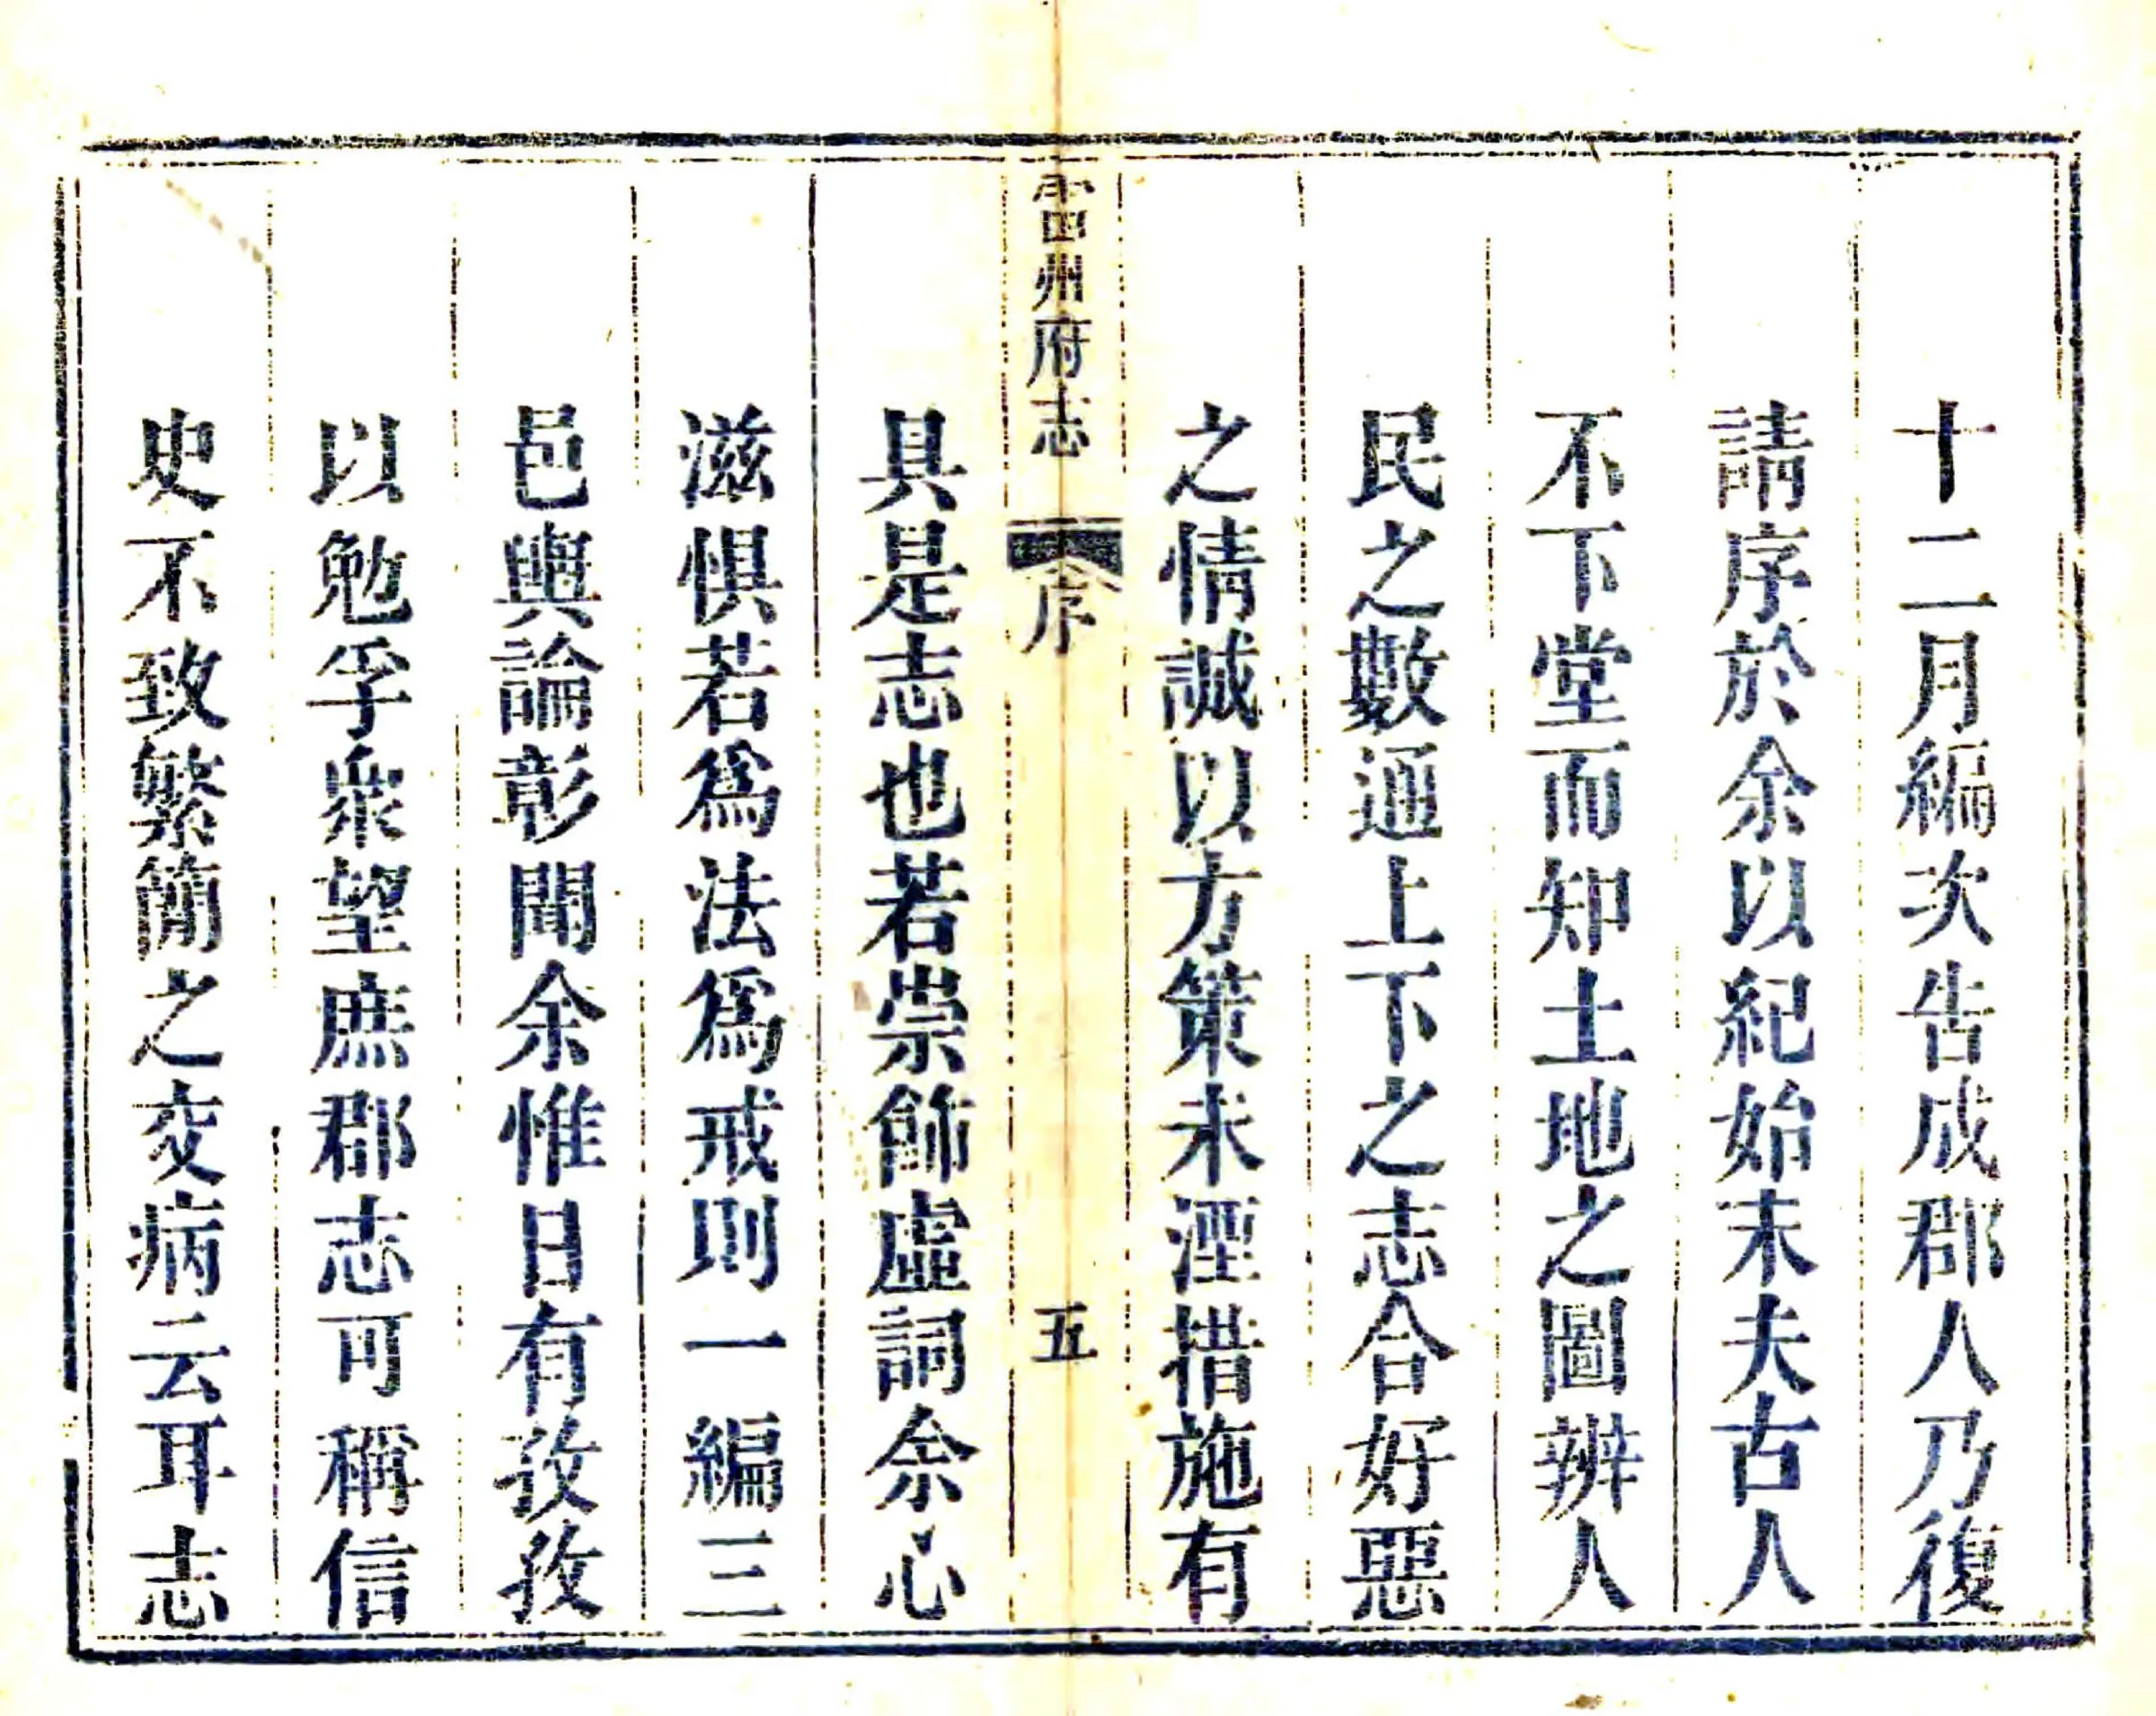 十二月編次告成郡人乃復
請序於余以紀始末夫古人
不下堂而知土地之圖辨人
民之數通上下之志合好惡
之情誠以方策未湮措施有
雷州府志 序 五
具是志也若崇飾虛詞余心
滋惧若爲法爲戒則一編三
邑輿論彰聞余惟日有孜孜
以勉孚衆望庶郡志可稱信
史不致繁簡之交病云耳志